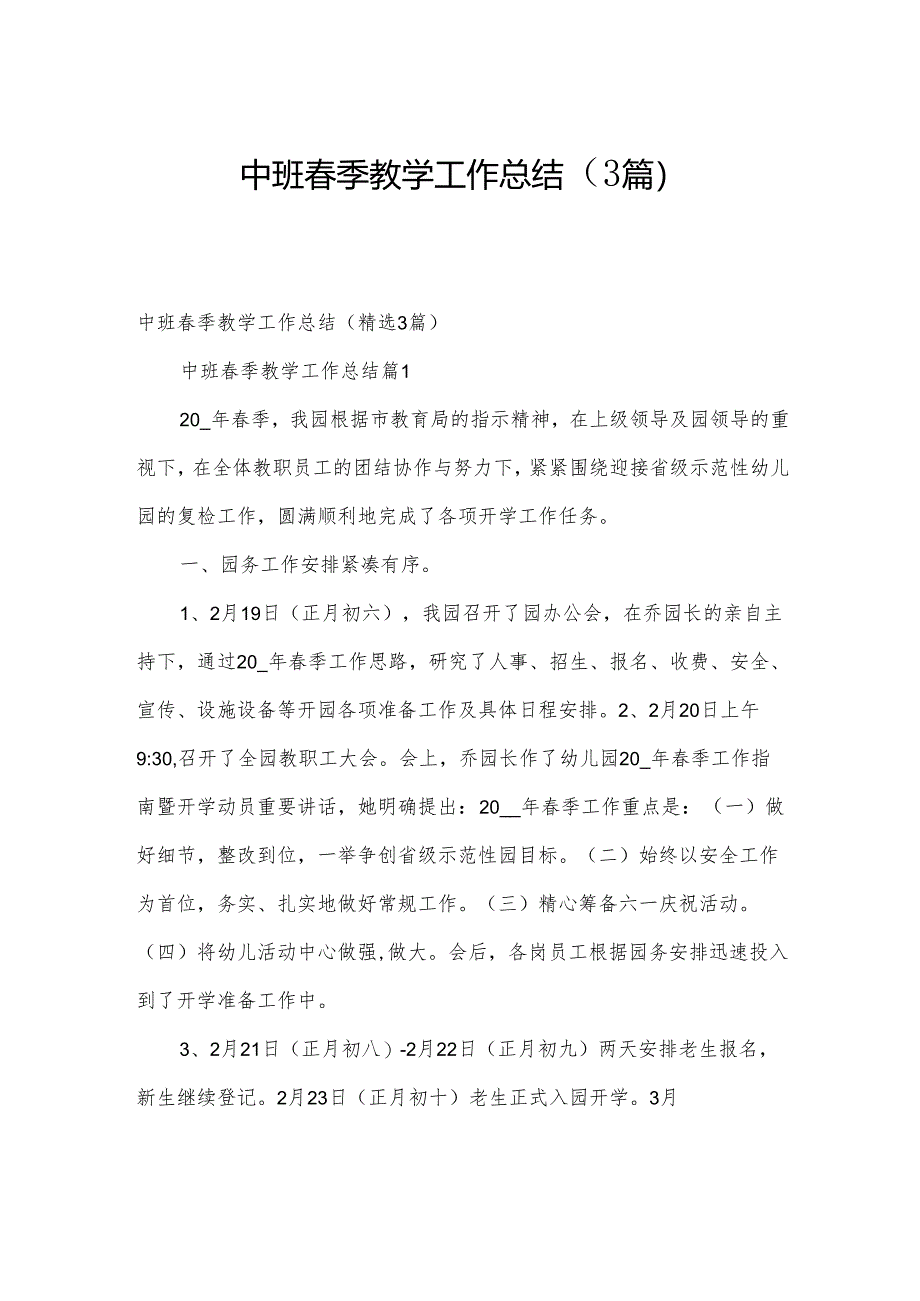 中班春季教学工作总结（3篇）
中班春季教学工作总结（精选3篇）
中班春季教学工作总结篇1
20_年春季，我园根据市教育局的指示精神，在上级领导及园领导的重
视下，在全体教职员工的团结协作与努力下，紧紧围绕迎接省级示范性幼儿
园的复检工作，圆满顺利地完成了各项开学工作任务。
一、园务工作安排紧凑有序。
1、2月19日（正月初六），我园召开了园办公会，在乔园长的亲自主
持下，通过20_年春季工作思路，研究了人事、招生、报名、收费、安全、
宣传、设施设备等开园各项准备工作及具体日程安排。2、2月20日上午
9:30,召开了全园教职工大会。会上，乔园长作了幼儿园20_年春季工作指
南暨开学动员重要讲话，她明确提出：20__年春季工作重点是：（一）做
好细节，整改到位，一举争创省级示范性园目标。（二）始终以安全工作
为首位，务实、扎实地做好常规工作。（三）精心筹备六一庆祝活动。
（四）将幼儿活动中心做强,做大。会后，各岗员工根据园务安排迅速投入
到了开学准备工作中。
3、2月21日（正月初八）-2月22日（正月初九）两天安排老生报名，
新生继续登记。2月23日（正月初十）老生正式入园开学。3月